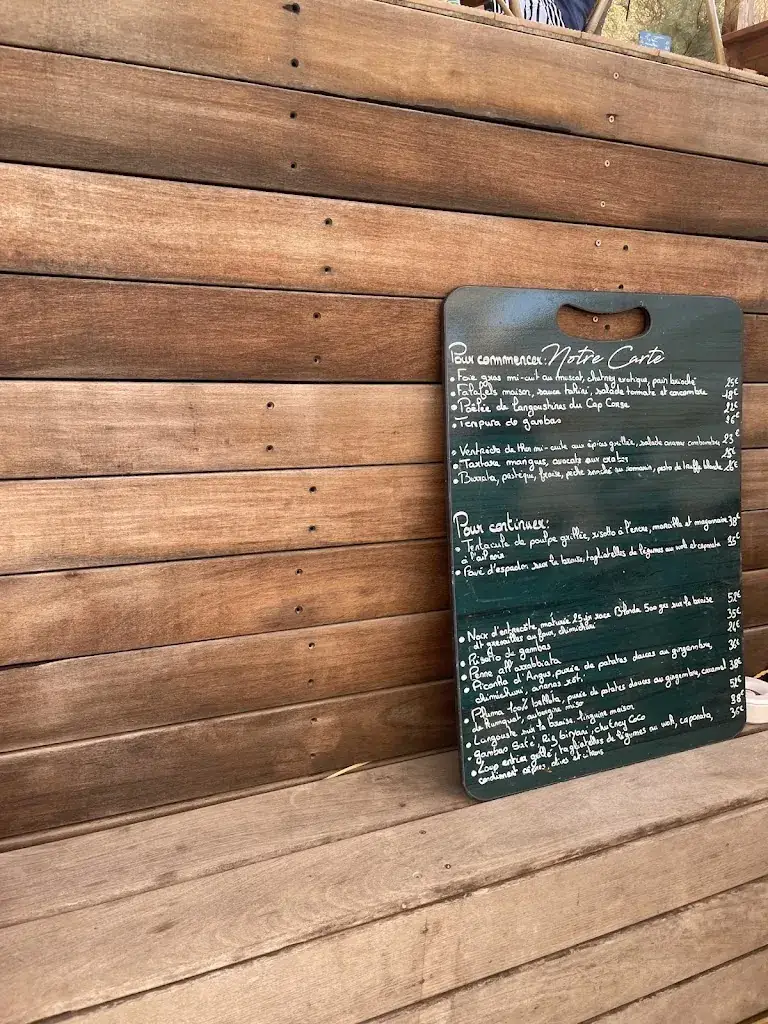 Notre Carte
Pour commencer:
• Foie gras mi-cuit au muscat, chutney exotique, pain brioché 25€
• Falafels maison, sauce tahini, salade tomate et concombre 18€
• Poêlée de langoustines du Cap Corse 22€
• Tempura de gambas 26€
• Ventrèche de thon mi-cuite aux épices grillée, salade concombre 23€
• Tartare mangue, avocats
• Burrata, pastèque, fraise, pêche au romarin, pesto de truffe blanche
Pour continuer:
• Tentacule de poulpe grillée, risotto à l'encre, et mayonnaise 38€
à l'ail noir
• Pavé d'espadon sur la braise, tagliatelles de légumes au wok et caponata 35€
• Noix d'entrecôte maturée 25 jrs race 500 grs sur la braise 52€
et grenailles au four, chimichuri
• Risotto de gambas 35€
• Penne all'arrabbiata 24€
• Picanha d'Angus, purée de patates douces au gingembre, 36€
chimichuri, ananas rôti
• Pluma 100% bellota, purée de patates douces au gingembre, caramel 38€
de kumquat, aubergine miso
• Langouste sur la braise, linguine maison
• gambas Saté, Riz biryani, chutney Coco
• Loup entier grillé, tagliatelles de légumes au wok, caponata,
condiment câpres, olives et citrons